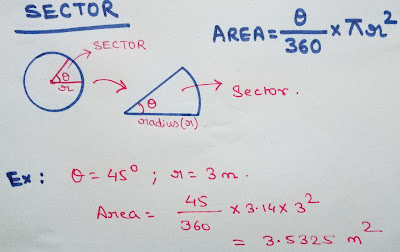 SECTOR
AREA = θ/360 × πr²
SECTOR
θ
r
θ
radius(r)
Sector.
Ex: θ = 45° ; r = 3 m.
Area = 45/360 × 3.14 × 3²
= 3.5325 m²